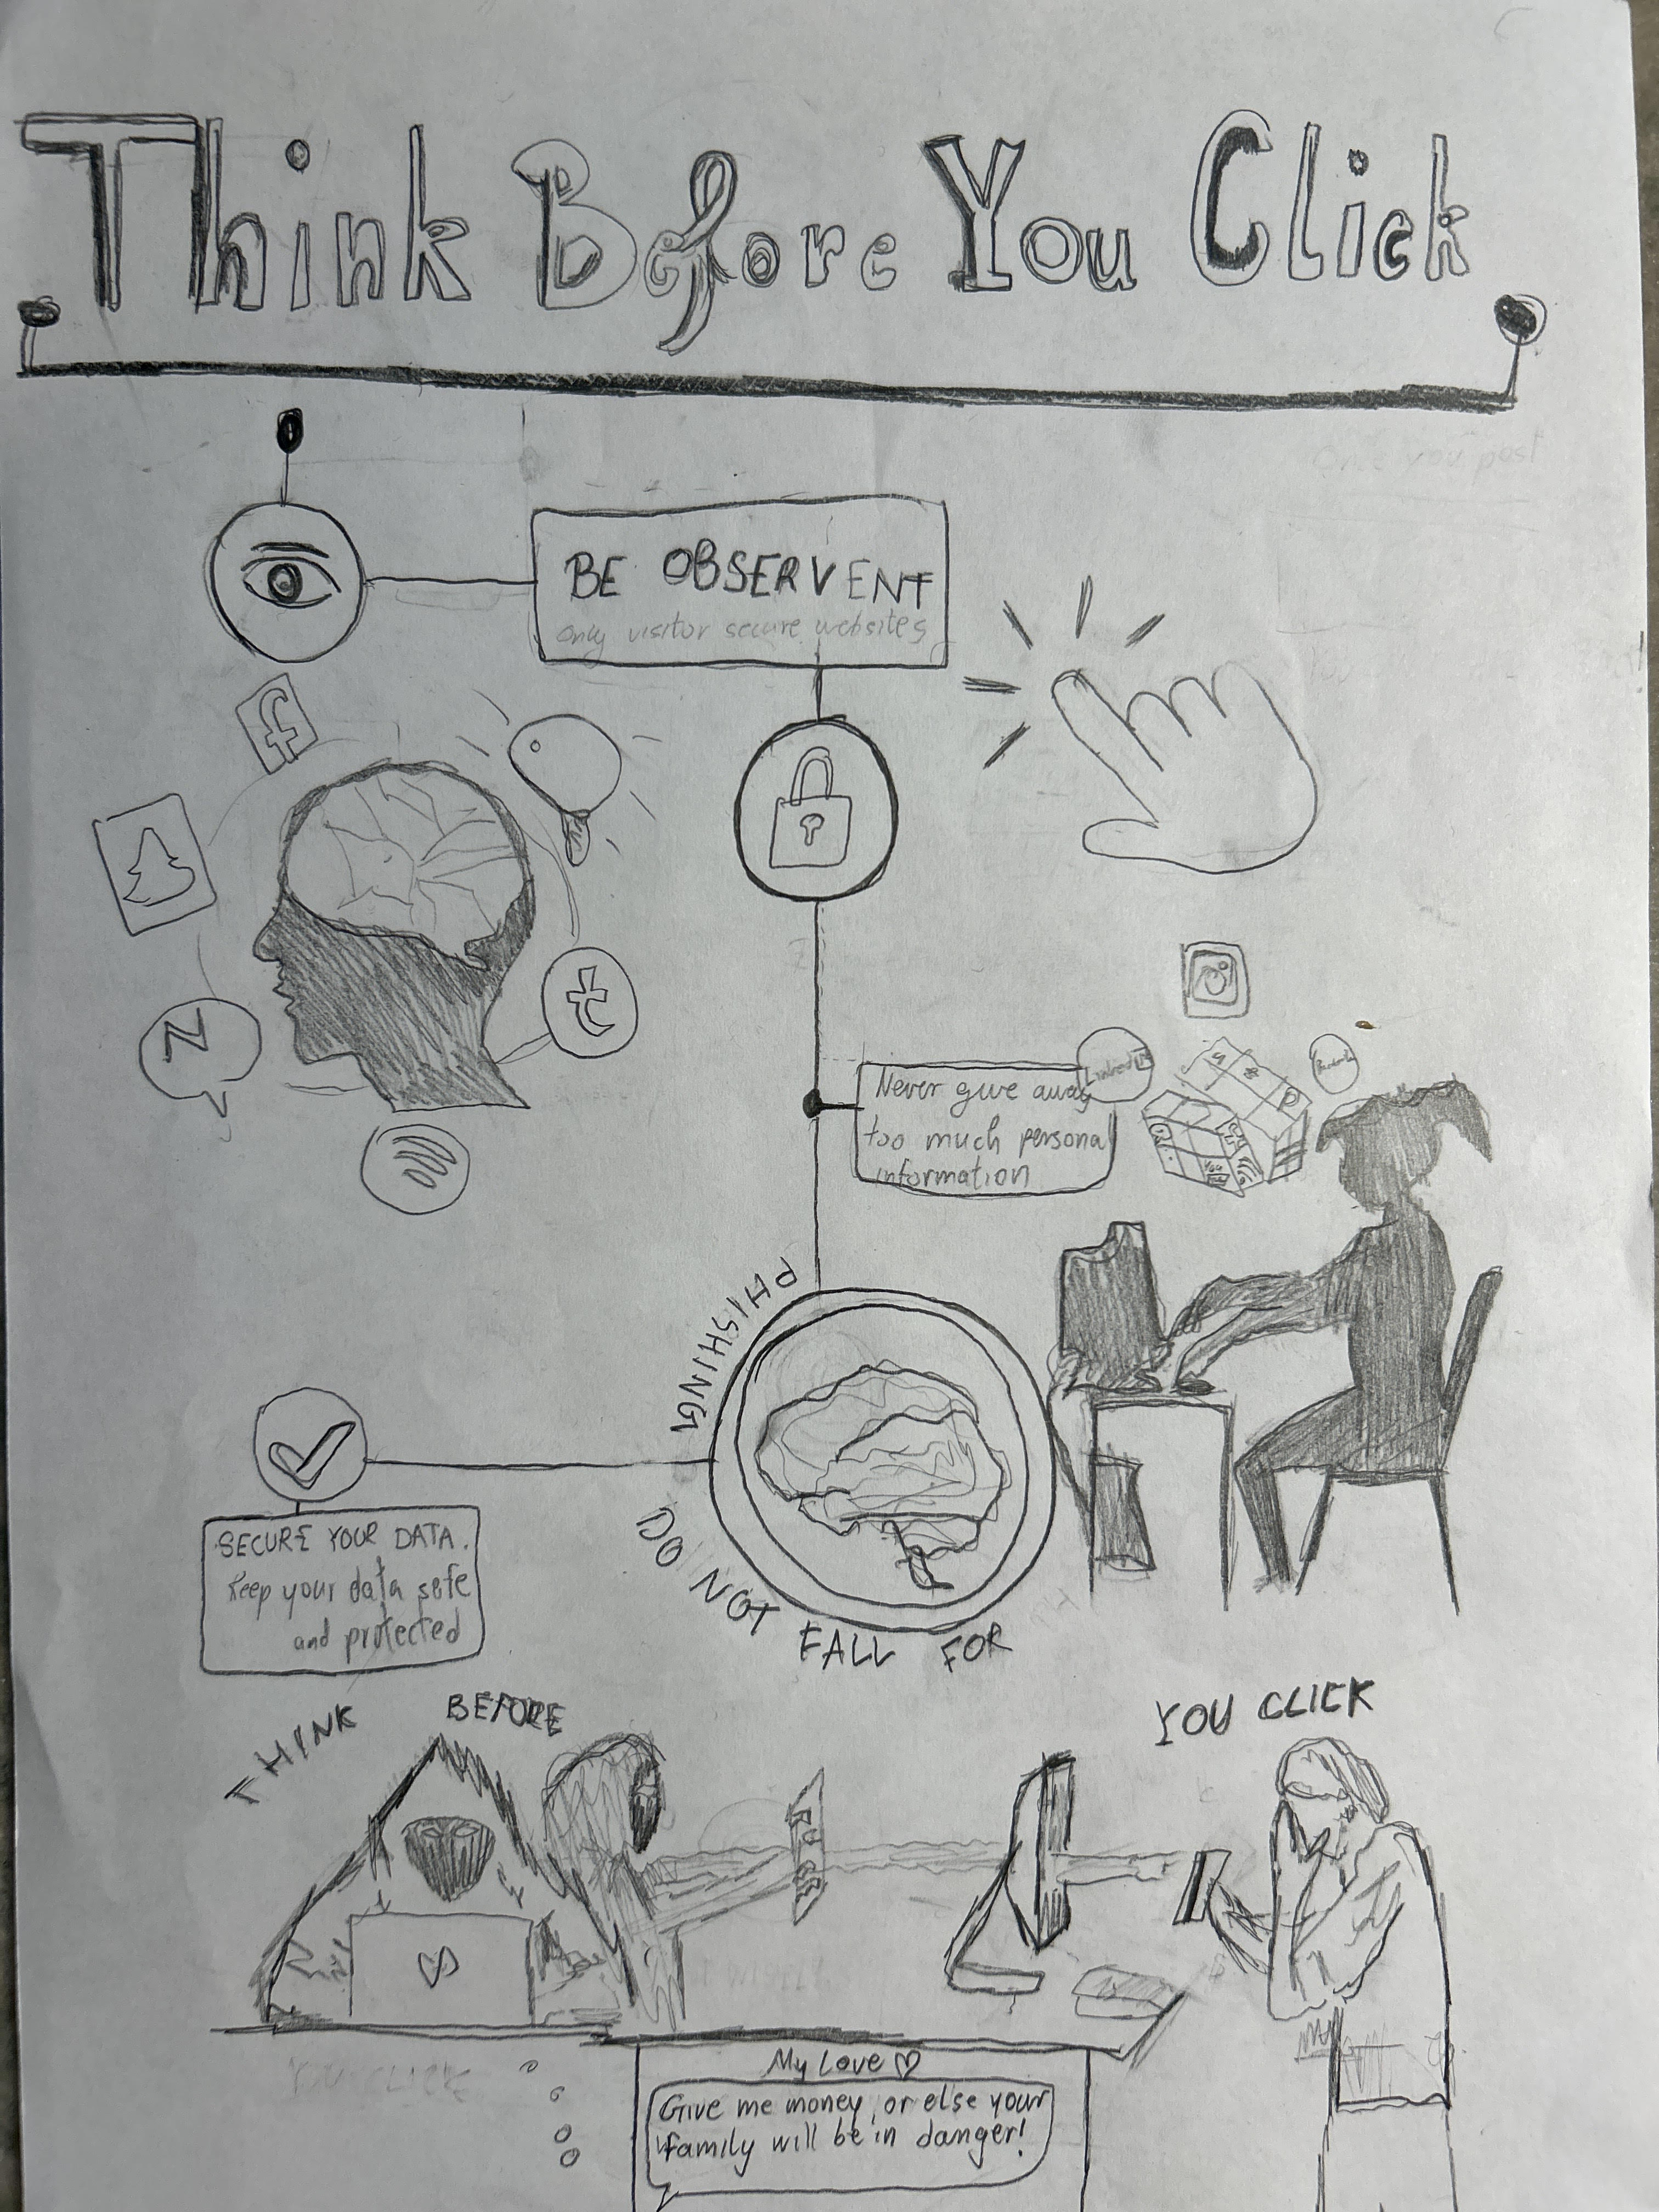 Think Before You Click
Once you post
BE OBSERVENT
only visitor secure websites
f
N
t
Never give away
too much personal
information
Linked in
PHISHING
SECURE YOUR DATA.
keep your data safe
and protected
DO NOT FALL FOR
THINK BEFORE YOU CLICK
My Love ♡
Give me money, or else your
family will be in danger!